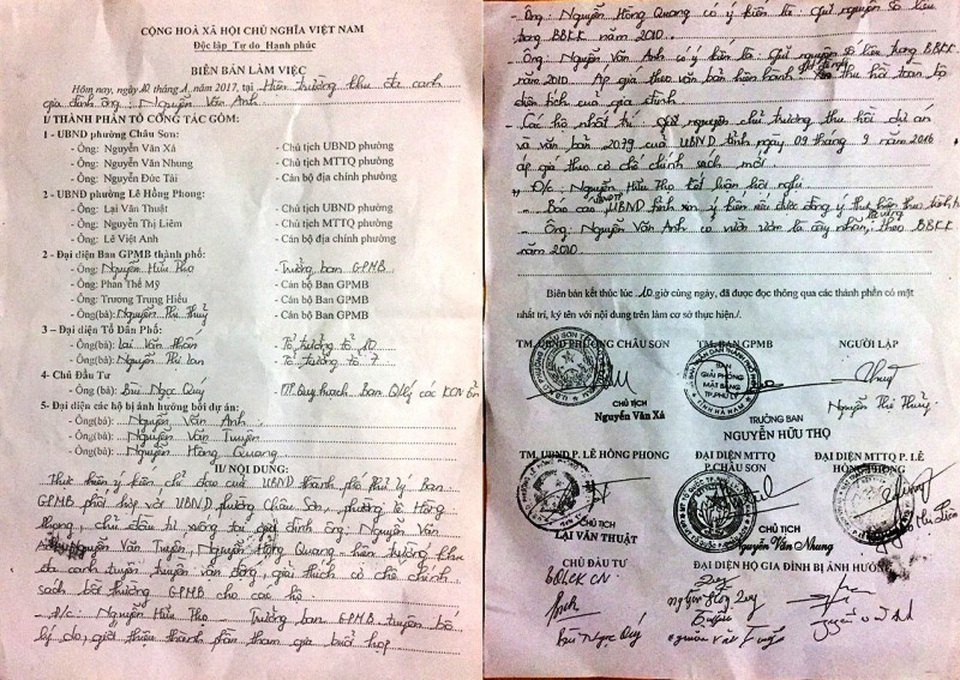 CỘNG HOÀ XÃ HỘI CHỦ NGHĨA VIỆT NAM
Độc lập Tự do Hạnh phúc
BIÊN BẢN LÀM VIỆC
Hôm nay, ngày 10 tháng 1, năm 2017, tại Hiện trường khu đa canh
gia đình ông: Nguyễn Văn Anh
I/ THÀNH PHẦN TỔ CÔNG TÁC GỒM:
1 - UBND phường Châu Sơn:
- Ông: Nguyễn Văn Xá - Chủ tịch UBND phường
- Ông: Nguyễn Văn Nhung - Chủ tịch MTTQ phường
- Ông: Nguyễn Đức Tài - Cán bộ địa chính phường
2 - UBND phường Lê Hồng Phong:
- Ông: Lại Văn Thuật - Chủ tịch UBND phường
- Ông: Nguyễn Thị Liêm - Chủ tịch MTTQ phường
- Ông: Lê Việt Anh - Cán bộ địa chính phường
2 - Đại diện Ban GPMB thành phố:
- Ông: Nguyễn Hữu Thọ - Trưởng ban GPMB
- Ông: Phan Thế Mỹ - Cán bộ Ban GPMB
- Ông: Trương Trung Hiếu - Cán bộ Ban GPMB
- Ông(bà): Nguyễn Thị Thuỷ - Cán bộ Ban GPMB
3 – Đại diện Tổ Dân Phố:
- Ông(bà): Lại Văn - Tổ trưởng tổ 10
- Ông(bà): Nguyễn Thị Lan - Tổ trưởng tổ 7
4 - Chủ Đầu Tư
- Ông(bà): Bùi Ngọc Quý - Quy hoạch Ban QLý các KCN
5- Đại diện các hộ bị ảnh hưởng bởi dự án:
- Ông(bà): Nguyễn Văn Anh
- Ông(bà): Nguyễn Văn Tuyên
- Ông(bà): Nguyễn Hồng Quang
II/ NỘI DUNG:
Thực hiện ý kiến chỉ đạo của UBND thành phố Phủ Lý Ban
GPMB phối hợp với UBND phường Châu Sơn, phường Lê Hồng
Phong, chủ đầu tư xuống tại gia đình ông: Nguyễn Văn
Nguyễn Văn Tuyên, Nguyễn Hồng Quang - hiện trường khu
đa canh tuyên truyền vận động, giải thích cơ chế chính
sách bồi thường GPMB cho các hộ.
- Đ/c: Nguyễn Hữu Thọ - Trưởng ban GPMB tuyên bố
lý do, giới thiệu thành phần tham gia buổi họp
- Ông: Nguyễn Hồng Quang có ý kiến là: Giữ nguyên số liệu
trong BBKK năm 2010.
- Ông: Nguyễn Văn Anh có ý kiến là: Giữ nguyên số liệu trong BBKK
năm 2010. Áp giá theo văn bản hiện hành thu hồi toàn bộ
diện tích của gia đình
- Các hộ nhất trí: Giữ nguyên chủ trương thu hồi dự án
và văn bản 2079 của UBND tỉnh ngày 09 tháng 9 năm 2016
áp giá theo cơ chế chính sách mới.
Đ/c: Nguyễn Hữu Thọ kết luận hội nghị
- Báo cáo UBND tỉnh xin ý kiến nếu được đồng ý thực hiện theo
- Ông: Nguyễn Văn Anh có vườn ươm là cây nhãn, theo BBKK
năm 2010.
Biên bản kết thúc lúc 10 giờ cùng ngày, đã được đọc thông qua các thành phần có mặt
nhất trí, ký tên với nội dung trên làm cơ sở thực hiện./.
TM. UBND PHƯỜNG CHÂU SƠN TM. BAN GPMB NGƯỜI LẬP
BAN
GIẢI PHÓNG
MẶT BẰNG
TP.PHỦ LÝ
CHỦ TỊCH
Nguyễn Văn Xá
TRƯỞNG BAN
NGUYỄN HỮU THỌ
Nguyễn Thị Thuỷ
TM. UBND P. LÊ HỒNG PHONG ĐẠI DIỆN MTTQ P.CHÂU SƠN ĐẠI DIỆN MTTQ P. LÊ HỒNG PHONG
CHỦ TỊCH
LẠI VĂN THUẬT
CHỦ TỊCH
Nguyễn Văn Nhung
CHỦ ĐẦU TƯ ĐẠI DIỆN HỘ GIA ĐÌNH BỊ ẢNH HƯỞNG
BQLCKCN
Bùi Ngọc Quý